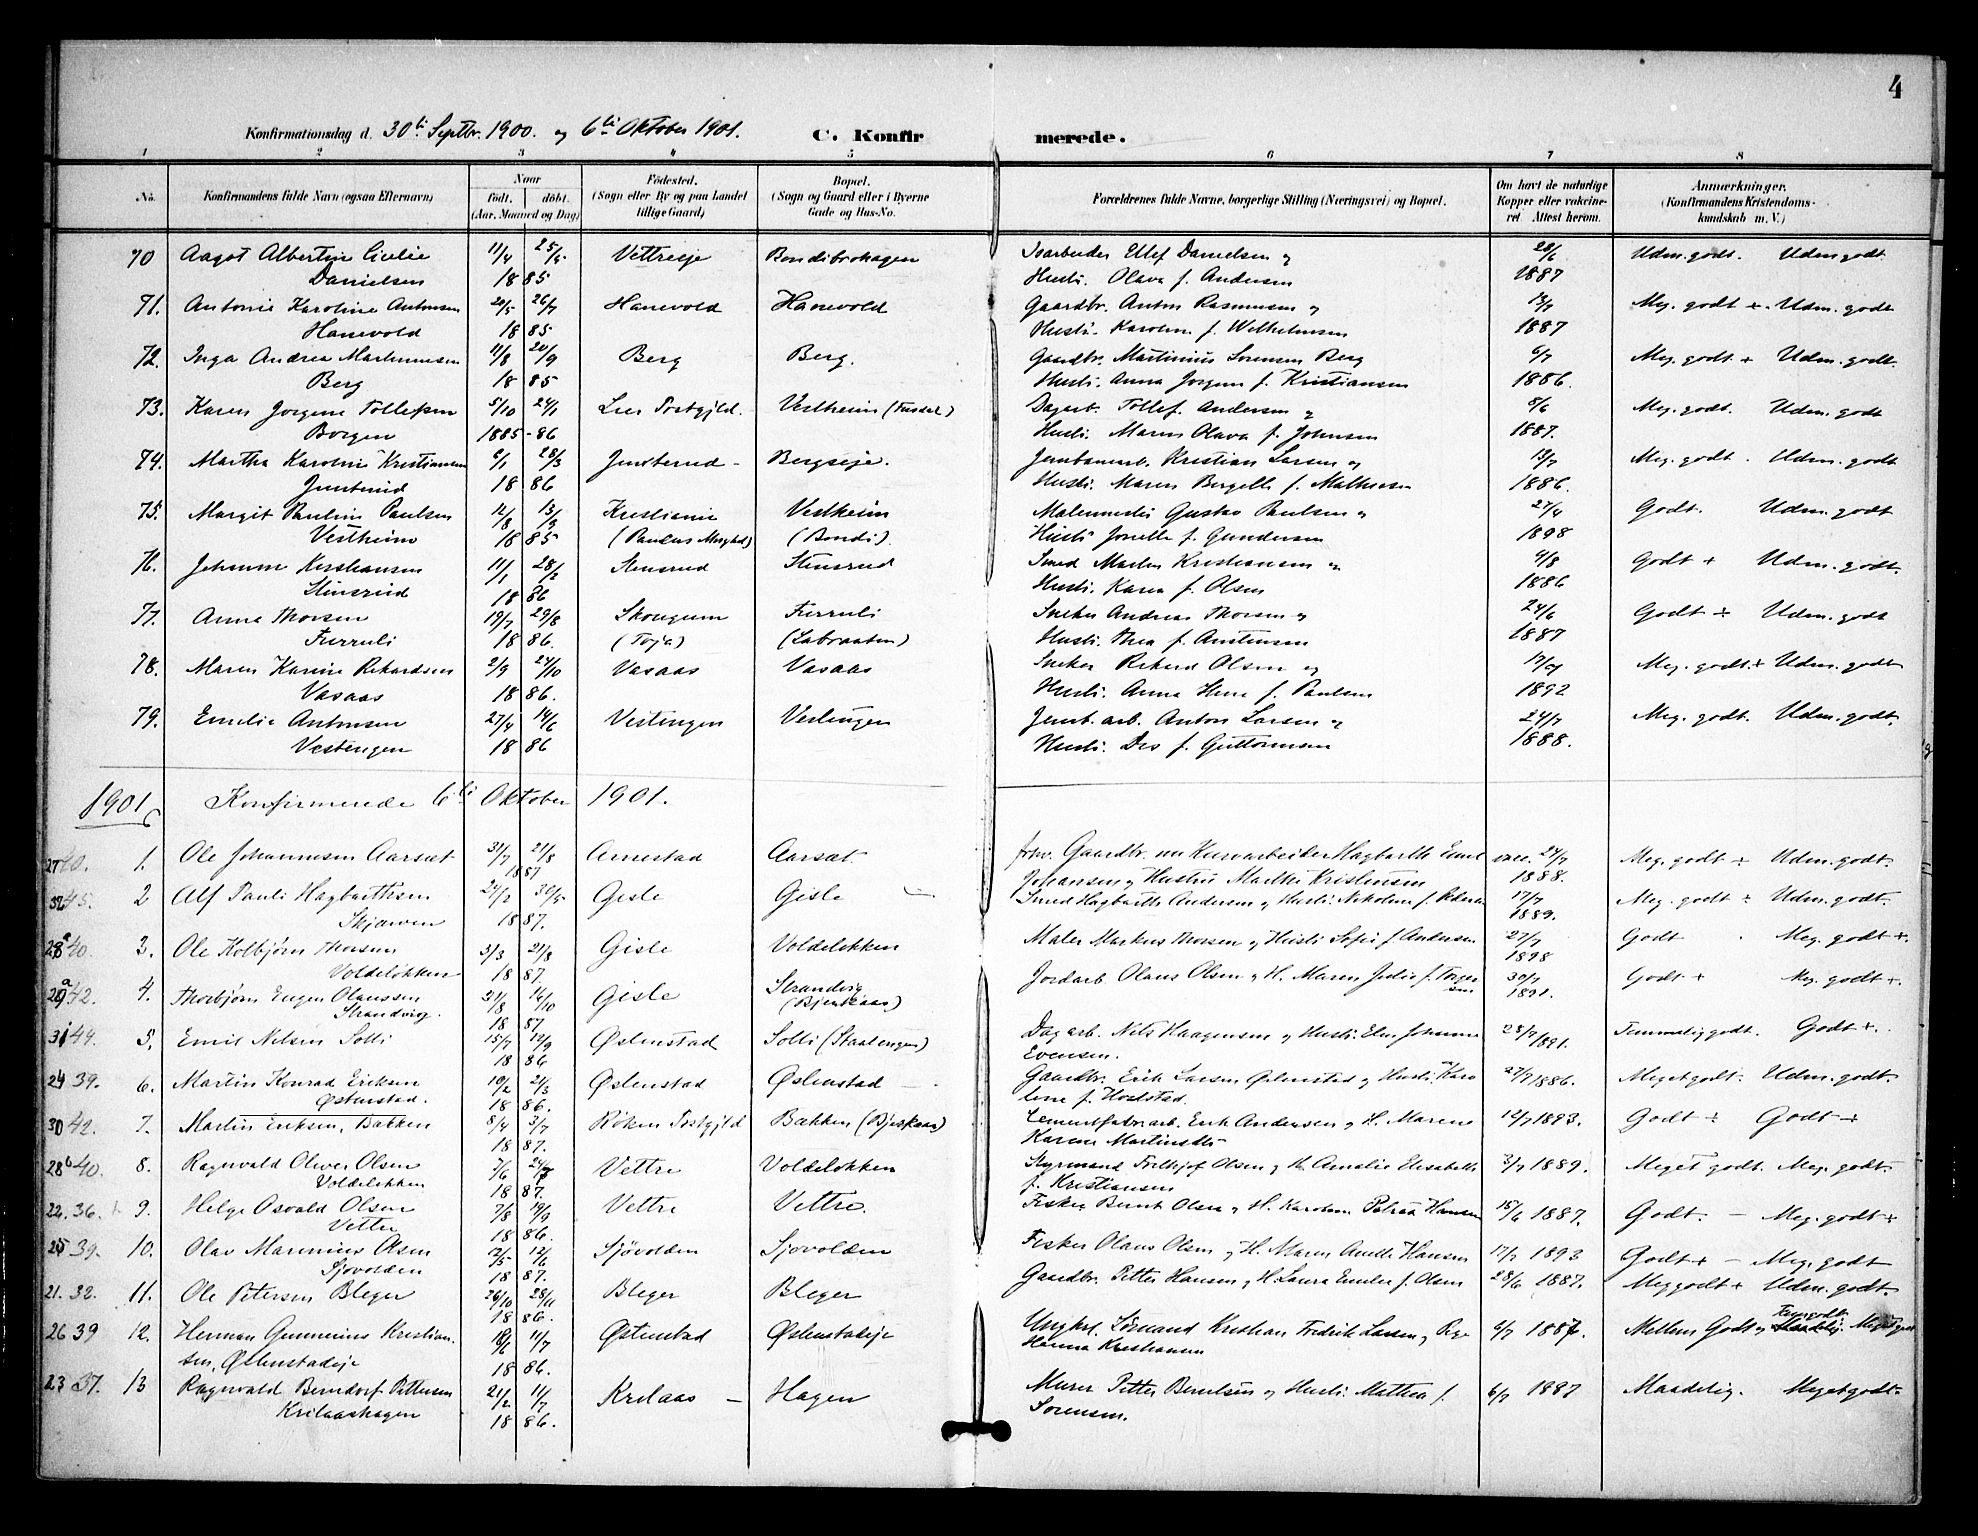 4
Konfirmationsdag d. 30te Septbr. 1900. og 6te Oktober 1901. C. Konfirmerede.
1 2 3 4 5 6 7 8
No. Konfirmandens fulde Navn (ogsaa Efternavn) Naar født. døbt. (Aar, Maaned og Dag) Fødested. (Sogn eller By og paa Landet tillige Gaard) Bopæl. (Sogn og Gaard eller i Byerne Gade og Hus-No. Forældrenes fulde Navne, borgerlige Stilling (Næringsvei) og Bopæl. Om havt de naturlige Kopper eller vaccineret. Attest herom. Anmærkninger. (Konfirmandens Kristendomskundskab m. V.)
70 Aagot Albertine Cicilie 11/4 25/5 Vettreeje Bondibrohagen Isarbeider Ellef Danielsen og 28/6 Udm. godt. Udm godt
Danielsen 18 85 Hustr. Olava f. Andersen 1887
71. Antonie Karoline Antonsen 24/5 26/7 Hanevold Hanevold Gaardbr. Anton Rasmussen og 13/7 Meg. godt + Udm. godt
Hanevold 18 85 Hustr. Karoline f. Wilhelmsen 1887
72. Inga Andrea Martinusen 11/8 20/9 Berg Berg. Gaardbr. Martinius Sorensen Berg 6/7 Meg. godt. + Udm. godt.
Berg 18 85 Hustr. Anna Jorgine f. Kristiansen 1886.
73. Karen Jorgine Tollefsen 5/10 24/1 Lier Prstgjld. Vestheim (Fusdal) Dagarb. Tollef Andersen og 8/6 Meg. godt. Udm. godt
Borgen 1885-86 Hustr. Maren Olava f. Johnsen 1887.
74. Martha Karoline Kristiansen 6/1 28/3 Jansterud - Bergseje. Jernbanearb. Kristian Larsen og 19/7 Meg. godt. Udm. godt
18 86 Hustr. Maren Bergelle f. Mathiesen 1886.
75. Margit Pauline Paulsen 12/8 13/9 Kristiania Vestheim Malermester Gustav Paulsen og 27/4 Godt. Udm. godt
Vestheim 18 85 (Bondi). Hustr. f. Gundersen 1898
76. Johanne Kristiansen 11/1 28/2 Stensrud Stensrud Smed Martin Kristiansen og 4/8 Godt + Udm. godt.
Stensrud 18 86 Hustr. Karen f. Olsen 1886
77. Anna Thorsen 19/7 29/8 Skougum Furruli Snekker Andreas Thorsen og 24/6 Godt ÷ Udm. godt
Furruli 18 86. (Toje) (Labraaten) Hustr. Thea f. Austensen 1887
78. Maren Karine Rikardsen 2/9 24/10 Vasaas Vasaas Snekker Rikard Olsen og 17/9 Meg. godt. + Udm. godt
Vasaas 18 86. Hustr. Anna f. Paulsen 1892
79. Emelie Antonsen 27/4 14/6 Vestengen Vestengen Jernb. arb. Anton Larsen og 24/7 Meg. godt. Udm. godt.
Vestengen 18 86 Hustr. f. Guttormsen 1888.
1901 Konfirmerede 6te Oktober 1901.
27 40. 1. Ole Johannesen Aarsæt 31/7 21/8 Arnestad Aarsæt. fhv. Gaardbr. nu Kurvarbeider Hagbarth Emil vacc. 24/7 Meg. godt ÷ Udm. godt.
1887 Johansen og Hustru Marthe Kristensen 1888.
32 45. 2 Alf Pauli Hagbarthsen 24/2 30/5 Gisle Gisle Smed Hagbarth Andersen og Hustr. Nikoline f. Pedersen 17/7 Meg. godt ÷ Udm. godt.
Skjærven 1887. 1889.
28a 40. 3. Ole Kolbjørn Thorsen 3/3 21/8 Gisle Voldeløkken Maler Markus Thorsen og Hustr. Sofie f. Andersen 27/7 Godt Meg. godt +.
Voldeløkken 18 87. 1898
29a 42. 4. Thorbjørn Eugen Olaussen 21/8 16/10 Gisle Strandvig Jordarb. Olaus Olsen og H. Maren Julie f. Torgersen 30/7 Godt + Meg. godt +.
Strandvig. 18 87 (Bjerkaas) 1891.
31 44. 5. Emil Nilsen Solli 15/7 12/9 Østenstad Solli (Staalengen) Dagarb. Nils Haagensen og Hustr. Johanne 28/7 1891. Temmelig godt. Godt +.
18 86 Evensen.
24 39. 6. Martin Konrad Eriksen 10/2 21/3 Østenstad Østenstad Gaardbr. Erik Larsen Østenstad og Hustr. Karo 27/7 1886. Meget godt. Udm. godt.
Østenstad. 18 86. line f. Hvalstad.
30 42. 7. Martin Eriksen, Bakken 8/4 3/7 Røken Prstgjld Bakken (Bjerkaas) Cementfabr. arb. Erik Andersen og H. Maren 12/7 1893. Godt ÷ Godt +
18 87. Karine Martinsdtr.
28b 40. 8. Ragnvald Oliver Olsen 7/6 Vettre Voldeløkken Styrmand Fridtjof Olsen og H. Amalie Elisabeth 3/7 1889. Meget godt. Meg. godt.
Voldeløkken 18 87. f. Kristiansen
22. 36. 9. Helge Osvald Olsen 7/8 19/9 Vettre Vettre. Fisker Bernt Olsen og H. Karoline Petrea Hansen 18/6 1887. Godt. - Meg. godt +
Vettre 18 86.
25 39. 10. Olav Marinius Olsen 12/5 12/6 Sjøvolden Sjøvolden Fisker Olaus Olsen og H. Maren Hansen 17/7 1893 Godt + - Meg. godt
Sjøvolden 18 87.
21. 32. 11. Ole Petersen Bleger 26/10 28/11 Bleger Bleger Gaardbr. Petter Hansen og H. Laura Emilie f. Olsen 28/6 1887. Meg godt + Udm. godt.
18 86.
26 39 12. Herman Gunnerius Kristian- 18/6 11/7 Østenstad Østenstadeje Ungkl. Sømand Kristian Fredrik Larsen og Pige 6/7 1887. Mellem Godt og Tem. godt. Meget godt
sen, Østenstadeje 18 86. Hanna Kristiansen
23 37. 13 Ragnvald Berndorf Pettersen 21/2 11/7 Krilaas - Hagen Murer Petter Berntsen og Hustr. Mathea f. 6/7 1887 Maadelig. Meget godt.
Krilaashagen 18 86. Sorensen.